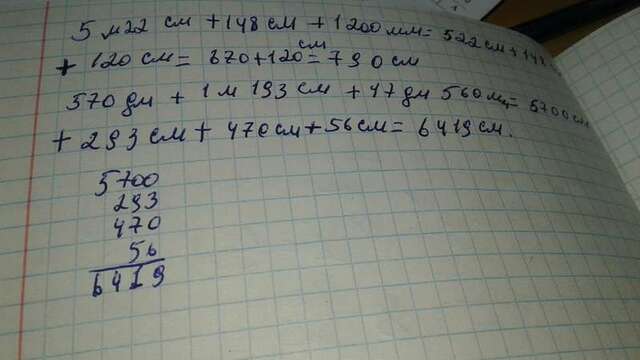 5 м 22 см + 148 см + 1200 мм = 522 см + 148
+ 120 см = 670 + 120 см = 790 см
570 дм + 1 м 193 см + 47 дм 560 мм = 5700 см
+ 293 см + 470 см + 56 см = 6419 см.
5700
293
470
56
6419